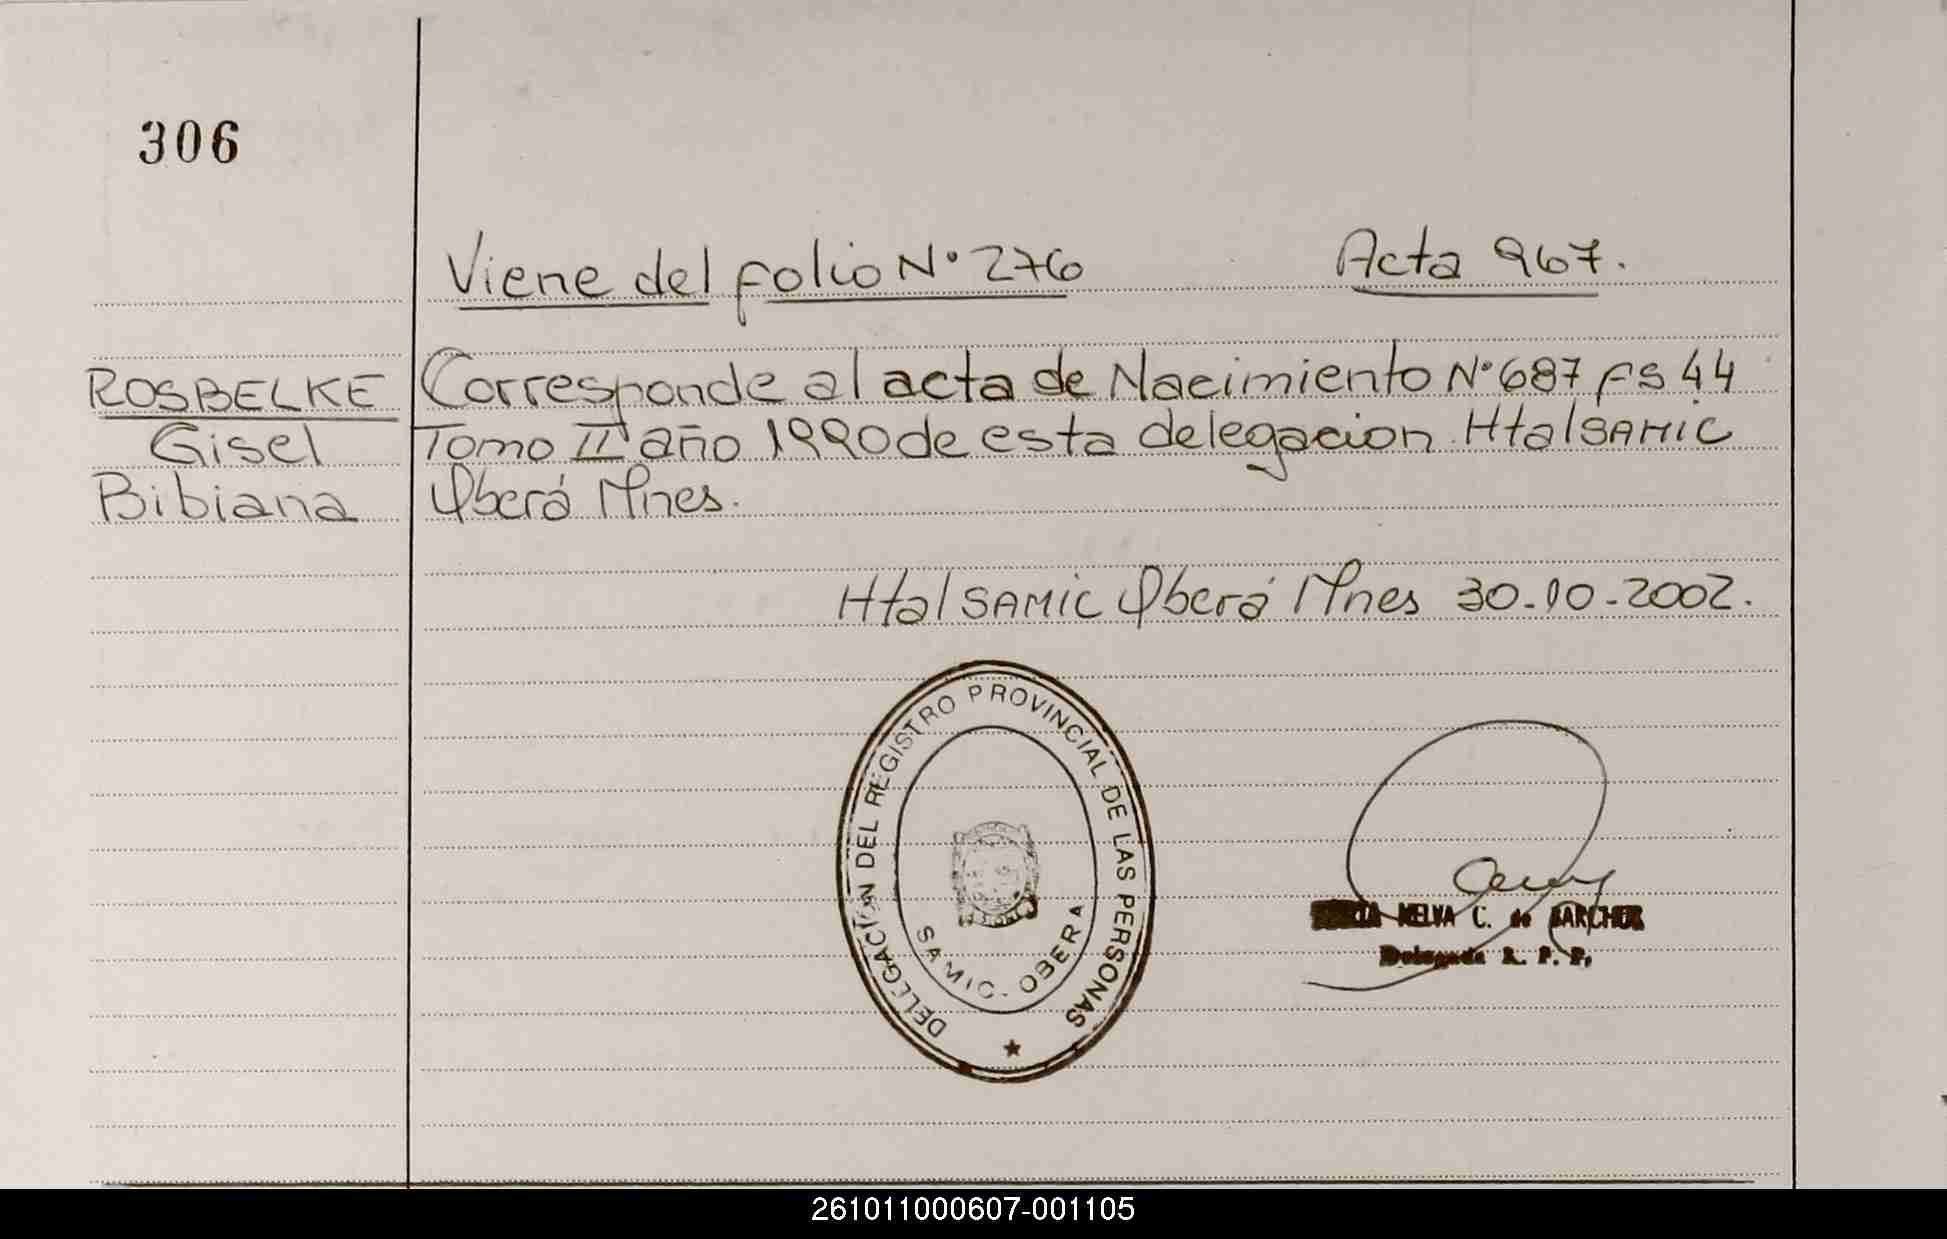 306
Viene del folio N° 276 Acta 967.
ROSBELKE Corresponde al acta de Nacimiento N° 687 FS 44
Gisel Tomo II año 1990 de esta delegacion Htal SAMIC
Bibiana Oberá Mnes.
Htal SAMIC Oberá Mnes 30-10-2002.
DELEGACIÓN DEL REGISTRO PROVINCIAL DE LAS PERSONAS
SAMIC - OBERA
MELVA C. de
Delegada R. P. P.
261011000607-001105